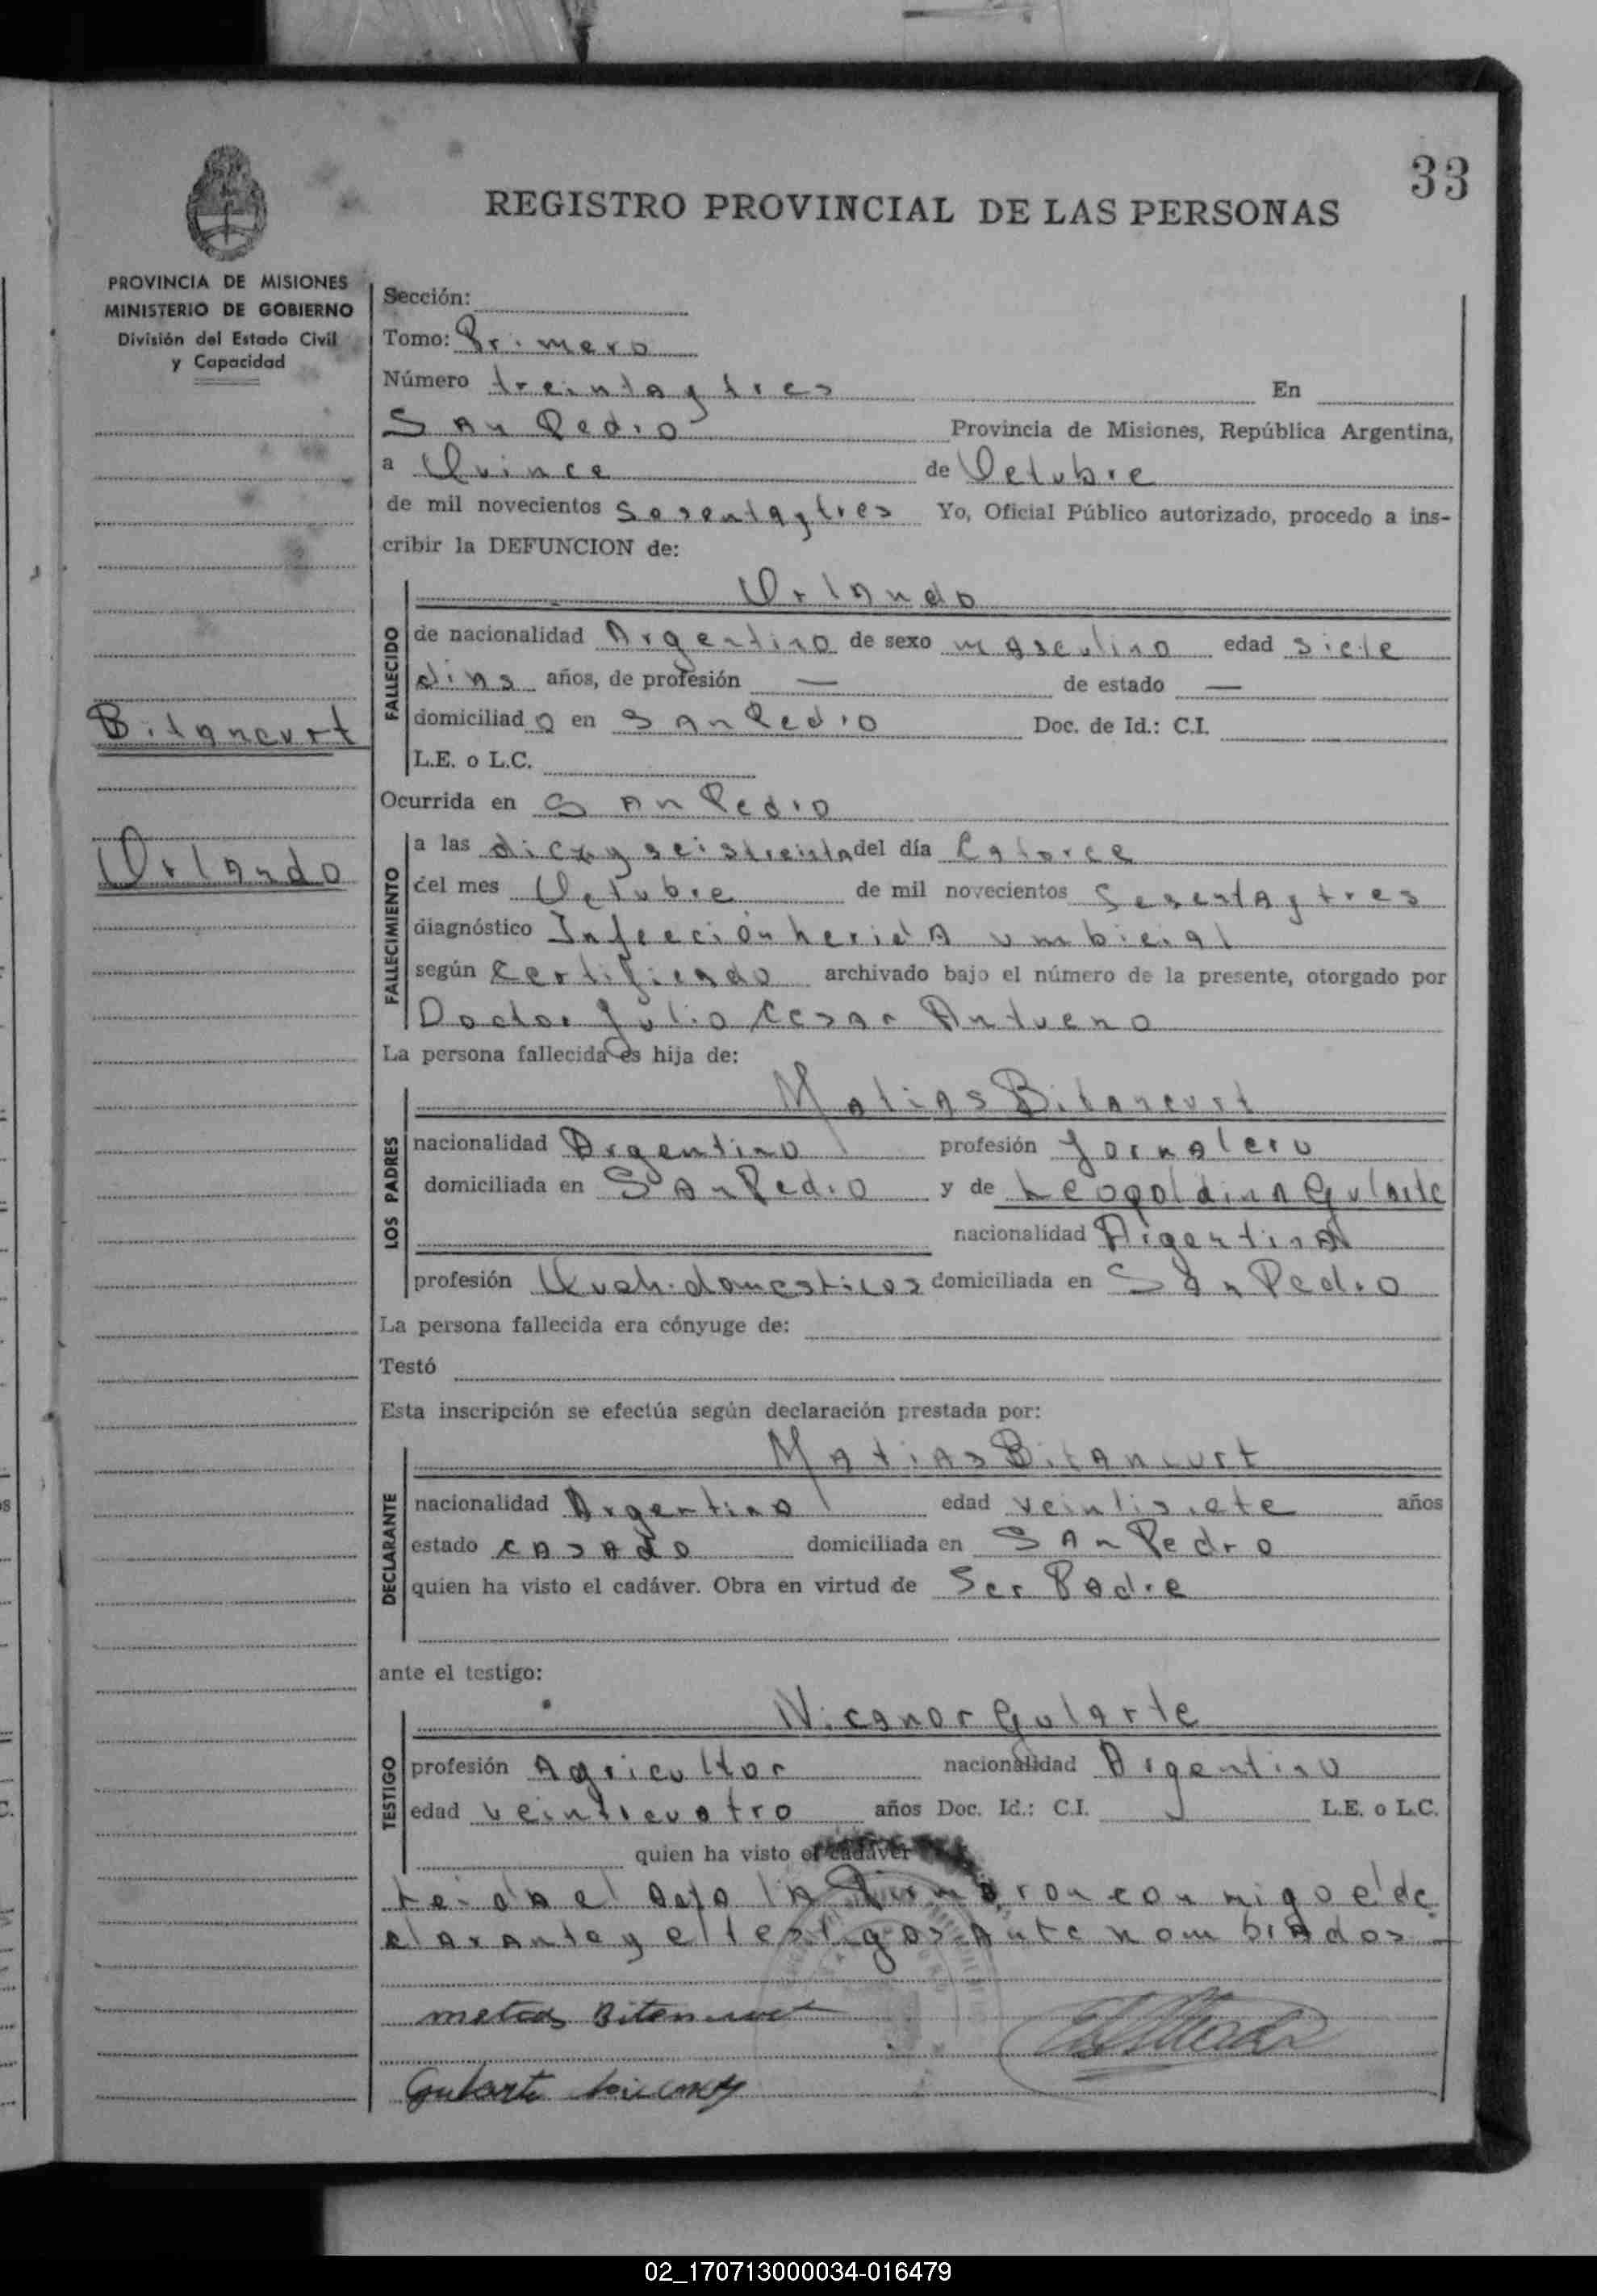 33
REGISTRO PROVINCIAL DE LAS PERSONAS
PROVINCIA DE MISIONES
MINISTERIO DE GOBIERNO
División del Estado Civil
y Capacidad
Bitancurt
Orlando
Sección:
Tomo: Primero
Número treintaytres En
San Pedro Provincia de Misiones, República Argentina,
a Quince de Octubre
de mil novecientos Sesentaytres Yo, Oficial Público autorizado, procedo a ins-
cribir la DEFUNCION de:
Orlando
FALLECIDO
de nacionalidad Argentino de sexo masculino edad siete
dias años, de profesión — de estado —
domiciliado en San Pedro Doc. de Id.: C.I.
L.E. o L.C.
Ocurrida en San Pedro
FALLECIMIENTO
a las diez y seis treinta del día Catorce
del mes Octubre de mil novecientos Sesentaytres
diagnóstico Infección herida umbical
según Certificado archivado bajo el número de la presente, otorgado por
Doctor Julio Cesar Antueno
La persona fallecida es hija de:
Matias Bitancurt
LOS PADRES
nacionalidad Argentino profesión Jornalero
domiciliada en San Pedro y de Leopoldina Gularte
nacionalidad Argentina
profesión Queh. domesticos domiciliada en San Pedro
La persona fallecida era cónyuge de:
Testó
Esta inscripción se efectúa según declaración prestada por:
Matias Bitancurt
DECLARANTE
nacionalidad Argentino edad veintisiete años
estado casado domiciliada en San Pedro
quien ha visto el cadáver. Obra en virtud de Ser Padre
ante el testigo:
Nicanor Gularte
TESTIGO
profesión Agricultor nacionalidad Argentino
edad veinticuatro años Doc. Id.: C.I. L.E. o L.C.
quien ha visto el cadáver
leida el Acta la firmaron conmigo el de
clarante y el testigos Ante nombrados —
matias Bitancurt
Gularte
02_170713000034-016479